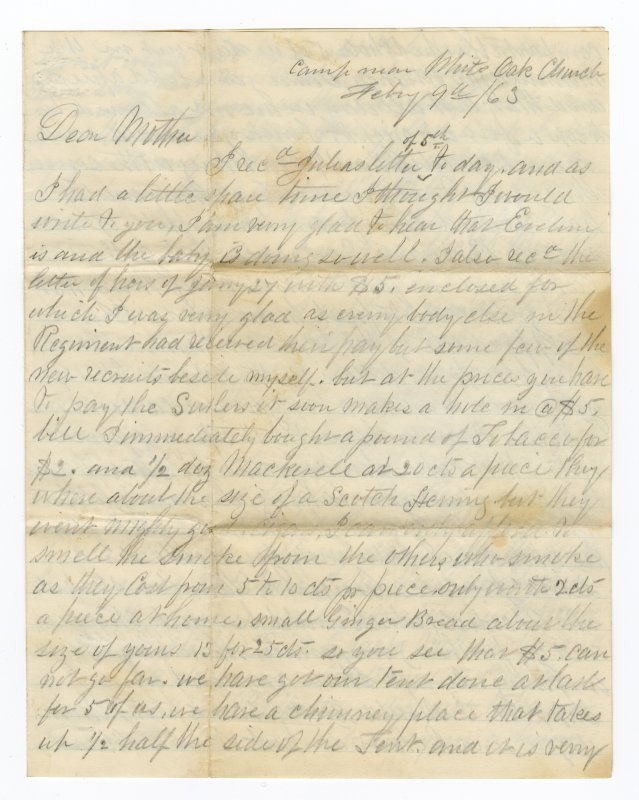 Camp near White Oak Church
Feby 9th /63
Dear Mother
of 5th
I recd Julias letter to day, and as
I had a little spare time I thought I would
write to you, I am very glad to hear that Eveline
is and the baby is doing so well. I also recd the
letter of hers of Jany 27 with $5. enclosed for
which I was very glad as every body else in the
Regiment had received their pay but some few of the
new recruits beside myself. but at the prices you have
to pay the Sutlers it soon makes a hole in a $5.
bill I immediately bought a pound of Tobacco for
$2. and 1/2 doz Mackerele at 20 cts a piece they
where about the size of a Scotch Herring but they
went mighty I can only afford to
smell the smoke from the others who smoke
as they Cost from 5 to 10 cts pr piece only worth 2cts
a piece at home, small Ginger Bread about the
size of yours 13 for 25 cts. so you see that $5. can
not go far. we have got our Tent done at last
for 5 of us, we have a chimney place that takes
up 1/2 half the side of the Tent. and it is very